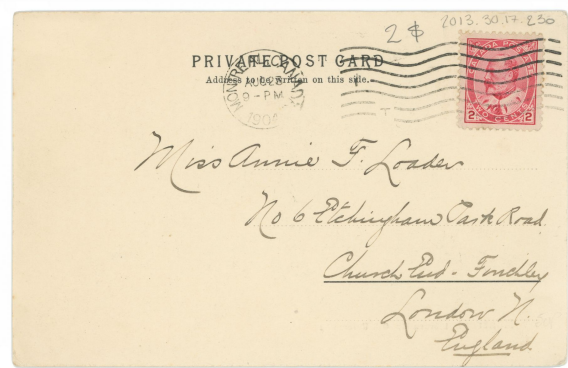 2013.30.17.238
2 ¢
PRIVATE POST CARD
Address to be written on this side.
MONTREAL, CANADA
9 - PM
CANADA POSTAGE
2 TWO CENTS 2
Miss Annie F. Loader
No 6 Etchingham Park Road
Church End - Finchley
London N.
England